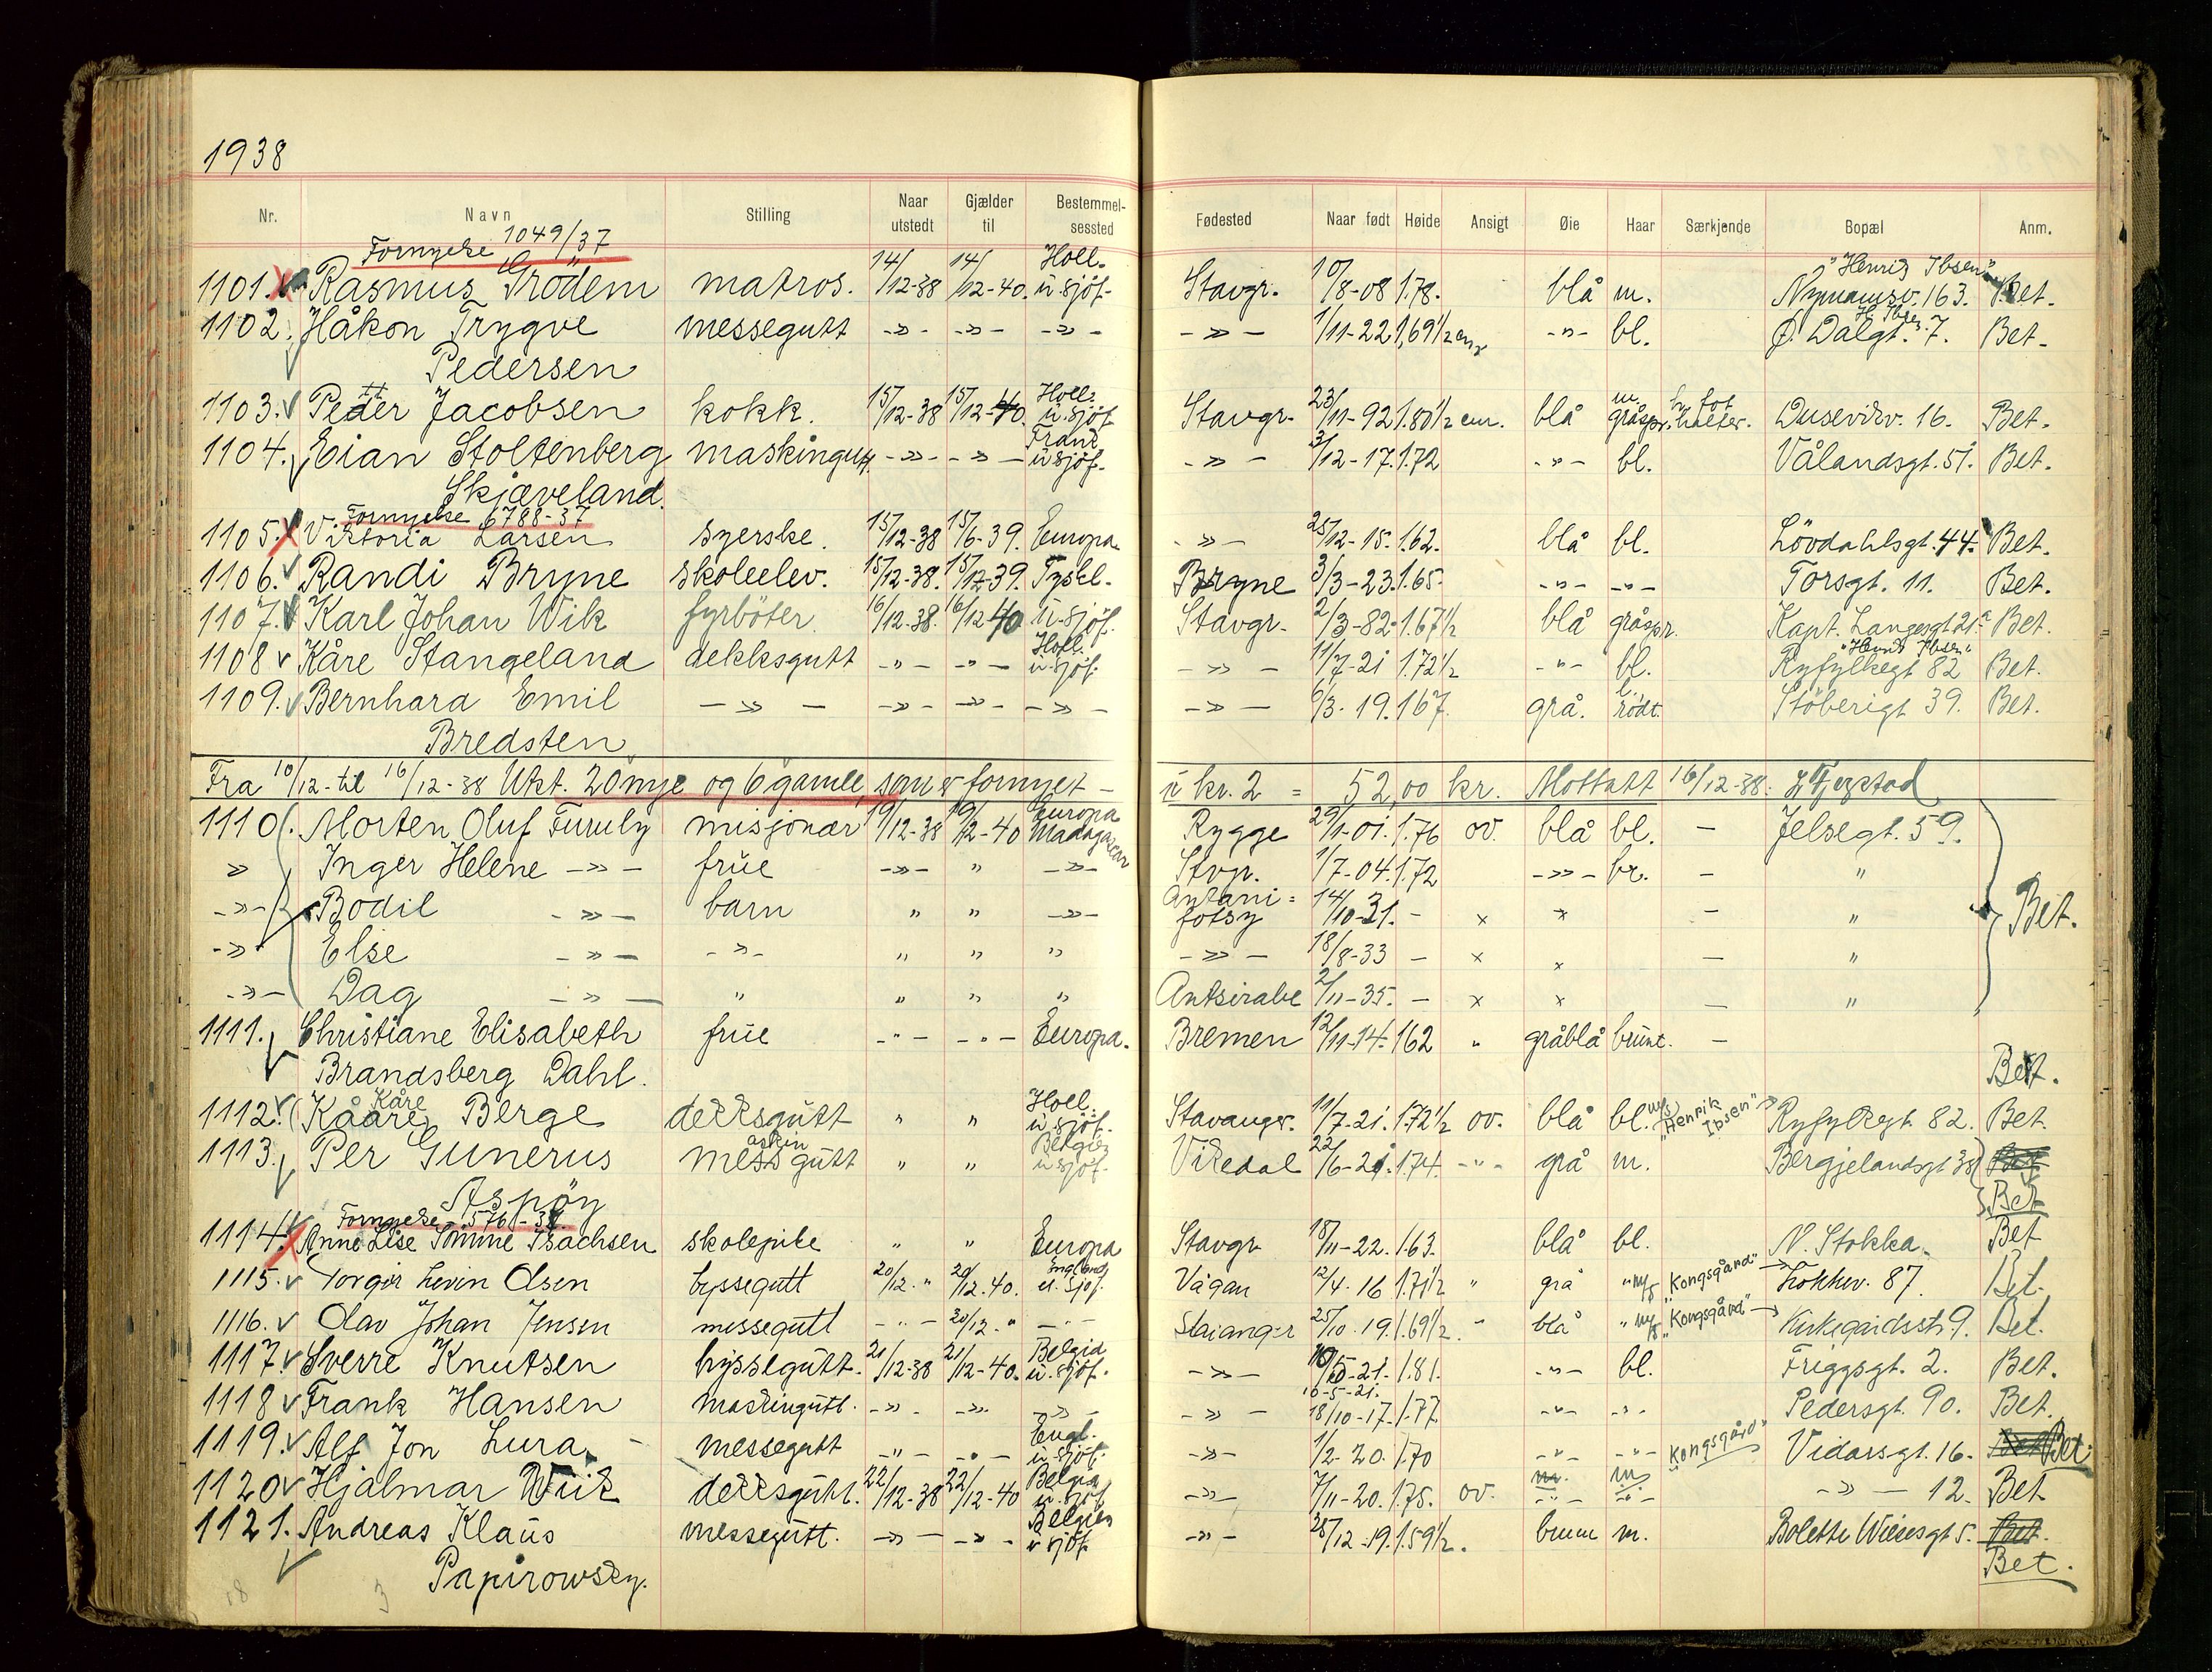 1938
Nr. Navn Stilling Naar utstedt Gjælder til Bestemmelsessted Fødested Naar født Høide Ansigt Øie Haar Særkjende Bopæl Anm.
Fornyelse 1049/37
1101. Rasmus Grödem matros. 14/12-38 14/12-40. Holl. u. sjöf. Stavgr. 10/8-08 1.78. blå m. "Henrik Ibsen" Nymansv. 163. Bet.
1102. Håkon Trygve messegutt -»- -»- -»- -»- 1/11-22 1,69 1/2 cm blå bl. H. Ibsen Ø. Dalgt. 7. Bet.
Pedersen
1103. Petter Jacobsen kokk. 15/12-38 15/12-40. Holl. u. sjöf. Stavgr. 23/11-92 1.80 1/2 cm. blå m. gråspr. h. fot halter. Dusevikv. 16. Bet.
1104. Eian Stoltenberg maskingutt -»- -»- Frank u sjöf. -»- 3/12-17. 1.72 -»- bl. Vålandsgt. 51. Bet.
Skjæveland.
Fornyelse 6788-37
1105. Viktoria Larsen syerske. 15/12-38 15/6-39. Europa -»- 25/12-15. 1.62. blå bl. Lövdahlsgt. 44. Bet.
1106. Randi Bryne skoleelev. 15/12-38. 15/12-39. Tyskl. Bryne 3/3-23. 1.65. -»- -»- Torsgt. 11. Bet.
1107. Karl Johan Wik fyrböter. 16/12-38. 16/12-40 u. sjöf. Stavgr. 2/3-82. 1.67 1/2 blå gråspr. Kapt. Langesgt 21.a Bet.
1108 Kåre Stangeland dekksgutt -»- -»- Holl. u sjöf. -»- 11/7-21 1.72 1/2 -»- bl. "Henrik Ibsen" Ryfylkegt 82 Bet.
1109. Bernhard Emil -»- -»- -»- -»- -»- 6/3-19. 167. grå. l. rödt. Stöberigt 39. Bet.
Bredsten
Fra 10/12-til 16/12-38 Utst. 20 nye og 6 gamle, som er fornyet - u kr. 2 = 52,00 kr. Mottatt 16/12-38.
1110. Morten Oluf Furuly misjonær 19/12-38 19/12-40 Europa Madagascar Rygge 29/1-01. 1.76 ov. blå bl. - Jelsegt. 59.
» Inger Helene -»- frue -»- " -»- Stvgr. 1/7-04. 1.72 -»- br. - "
-»- Bodil -»- barn " " -»- Antanifotsy 14/10-31. - x x - " Bet.
-»- Else -»- -»- " " " -»- 18/8-33 - x x - "
-»- Dag -»- " " " " Antsirabe 2/11-35. - x x - "
1111. Christiane Elisabeth frue -"- -"- Europa. Bremen 12/11-14. 162 " gråblå brunt. -
Brandsberg Dahl. Bet.
1112. Kååre Kåre Berge dekksgutt " " Holl. u. sjöf. Stavanger. 11/7-21. 1.72 1/2 ov. blå bl. m/s "Henrik Ibsen" Ryfylkegt. 82. Bet.
1113. Per Gunerus mess askin gutt " " Belgien u sjöf. Vikedal 22/6-21. 1.74. -"- grå m. Bergjelandsgt 38 Bet
Aspöy Bet
Fornyelse 576-38.
1114. Anne Lise Sömme Isachsen skolepike " " Europa Stavgr 18/11-22. 1.63. blå bl. N. Stokka. Bet
1115. Torgeir Levin Olsen byssegutt 20/12. " 20/12.40. England u. sjöf. Vågan 12/4.16 1.71 1/2 " grå " m/s "Kongsgård" Lokkev. 87. Bet.
1116. Olav Johan Jensen messegutt -"- 20/12. " -"- Stavanger 25/10.19. 1.69 1/2. " blå " m/s "Kongsgård" Kirkegårdsstr 9. Bet.
1117. Sverre Knutsen byssegutt. 21/12-38 21/12-40. Belgia u. sjöf. -»- 10/5-21. 1.81. -"- bl. Friggsgt. 2. Bet.
1118 Frank Hansen maskingutt. -»- -»- -»- -»- 18/10-17. 1.77 -"- -"- Pedersgt. 90. Bet.
1119. Alf Jon Lura messegutt -"- -"- Engl. u sjöf. -»- 1/2-20. 1.70 -"- -"- "Kongsgård" Vidarsgt. 16. Bet.
1120 Hjalmar Wiik dekksgutt. 22/12-38 22/12-40 Belgia u. sjöf. -»- 7/11-20. 1.75. ov. -"- m. -»- 12. Bet.
1121. Andreas Klaus messegutt. -»- -»- Belgien u sjöf. -»- 28/12-19. 1.59 1/2. brun m. Bolette Wiesesgt 5. Bet.
Papirowsky. Bet.